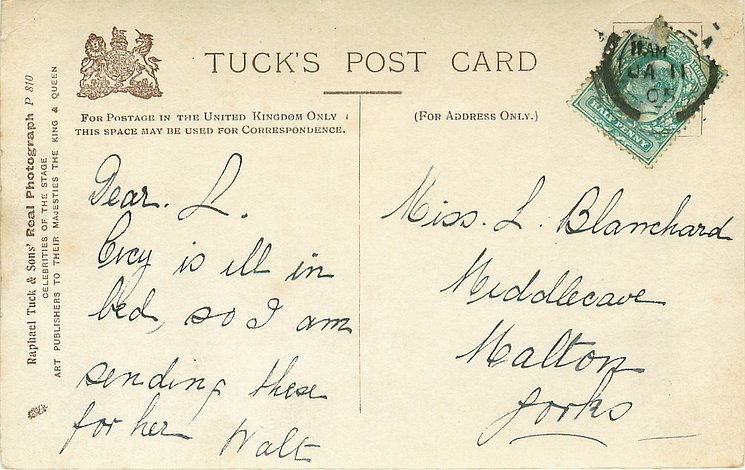 TUCK'S POST CARD
FOR POSTAGE IN THE UNITED KINGDOM ONLY
THIS SPACE MAY BE USED FOR CORRESPONDENCE.
(FOR ADDRESS ONLY.)
11 AM
JA 11
05
HALF PENNY
Raphael Tuck & Sons' Real Photograph P 810
CELEBRITIES OF THE STAGE
ART PUBLISHERS TO THEIR MAJESTIES THE KING & QUEEN
Dear. L.
Cicy is ill in
bed, so I am
sending these
for her Walt
Miss. L. Blanchard
Middlecave
Malton
Yorks